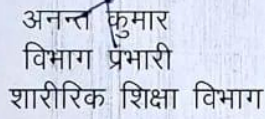 अनन्त कुमार
विभाग प्रभारी
शारीरिक शिक्षा विभाग